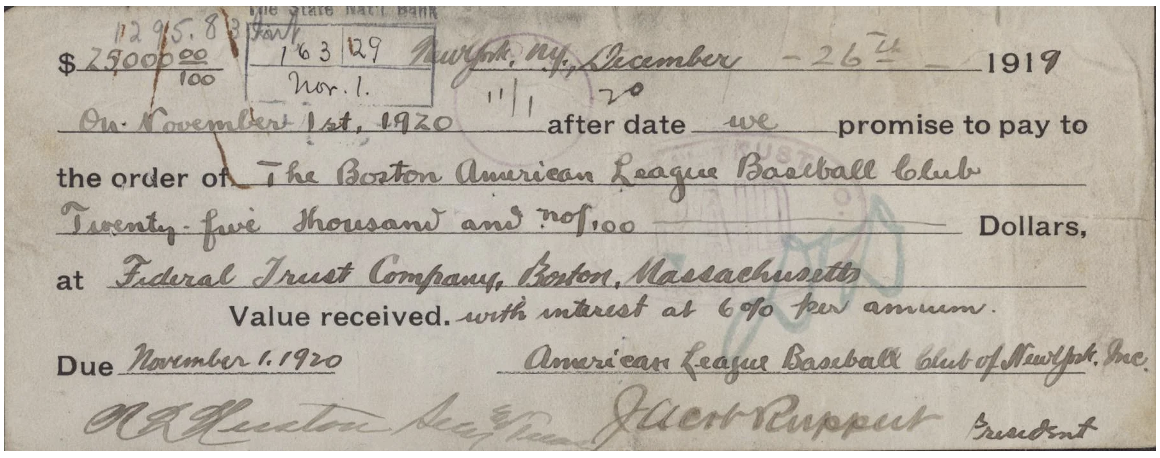 The State Nat'l Bank
1295.83 Int
163 | 29
Nov. 1.
$ 25000 00/100 New York, N.Y., December - 26th - 1919
11/1 20
On November 1st, 1920 after date we promise to pay to
the order of The Boston American League Baseball Club
Twenty-five thousand and no/100 Dollars,
at Federal Trust Company, Boston, Massachusetts
Value received. with interest at 6% per annum.
Due November 1. 1920 American League Baseball Club of New York, Inc.
Jacob Ruppert President